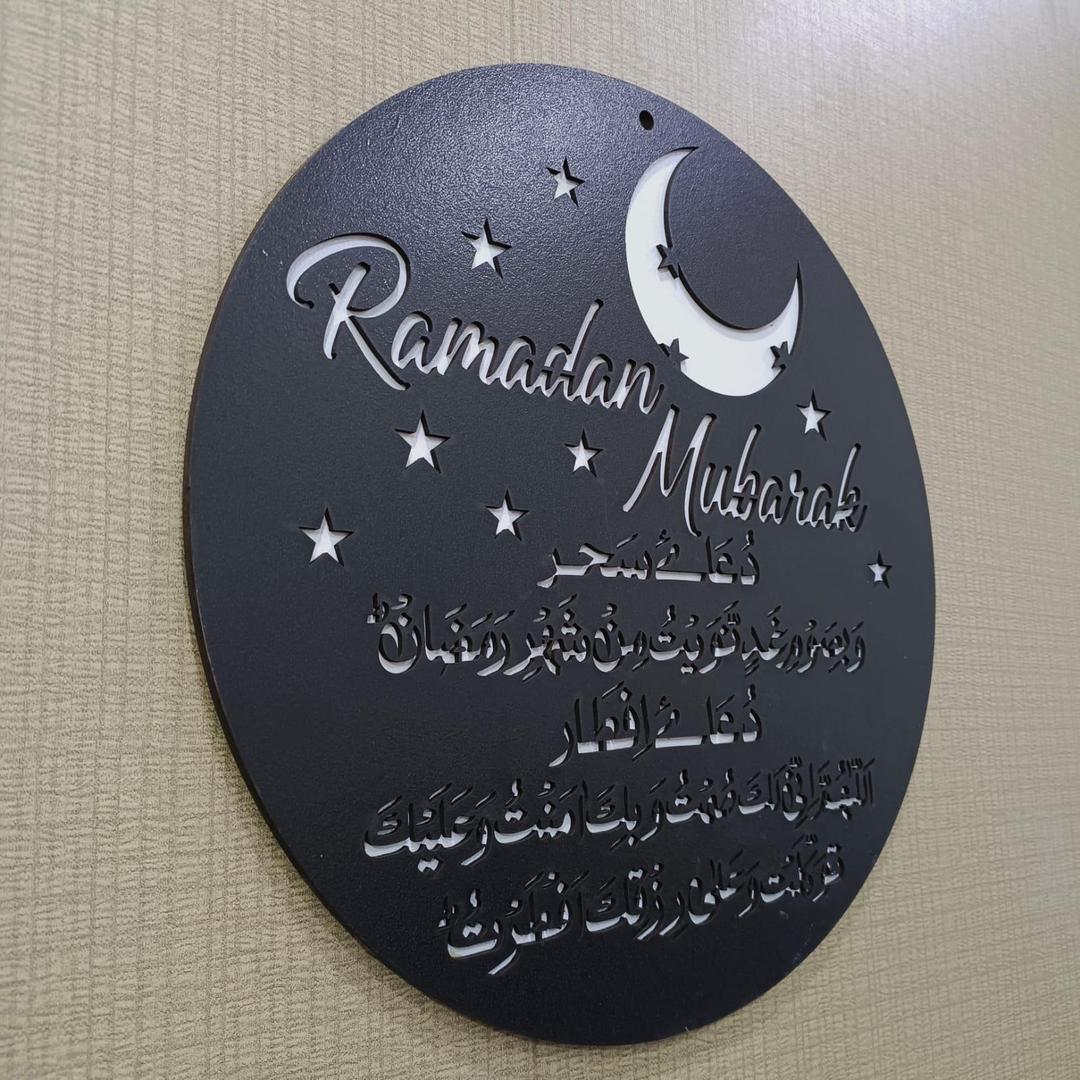 Ramadan
Mubarak
دُعَائے سَحر
وَبِصَوْمِ غَدٍ نَّوَيْتُ مِنْ شَهْرِ رَمَضَانَ ؕ
دُعَائے اِفَطار
اَللّٰهُمَّ اِنِّی لَكَ صُمْتُ وَبِكَ اٰمَنْتُ وَعَلَيْكَ
تَوَكَّلْتُ وَعَلٰی رِزْقِكَ اَفْطَرْتُ ؕ